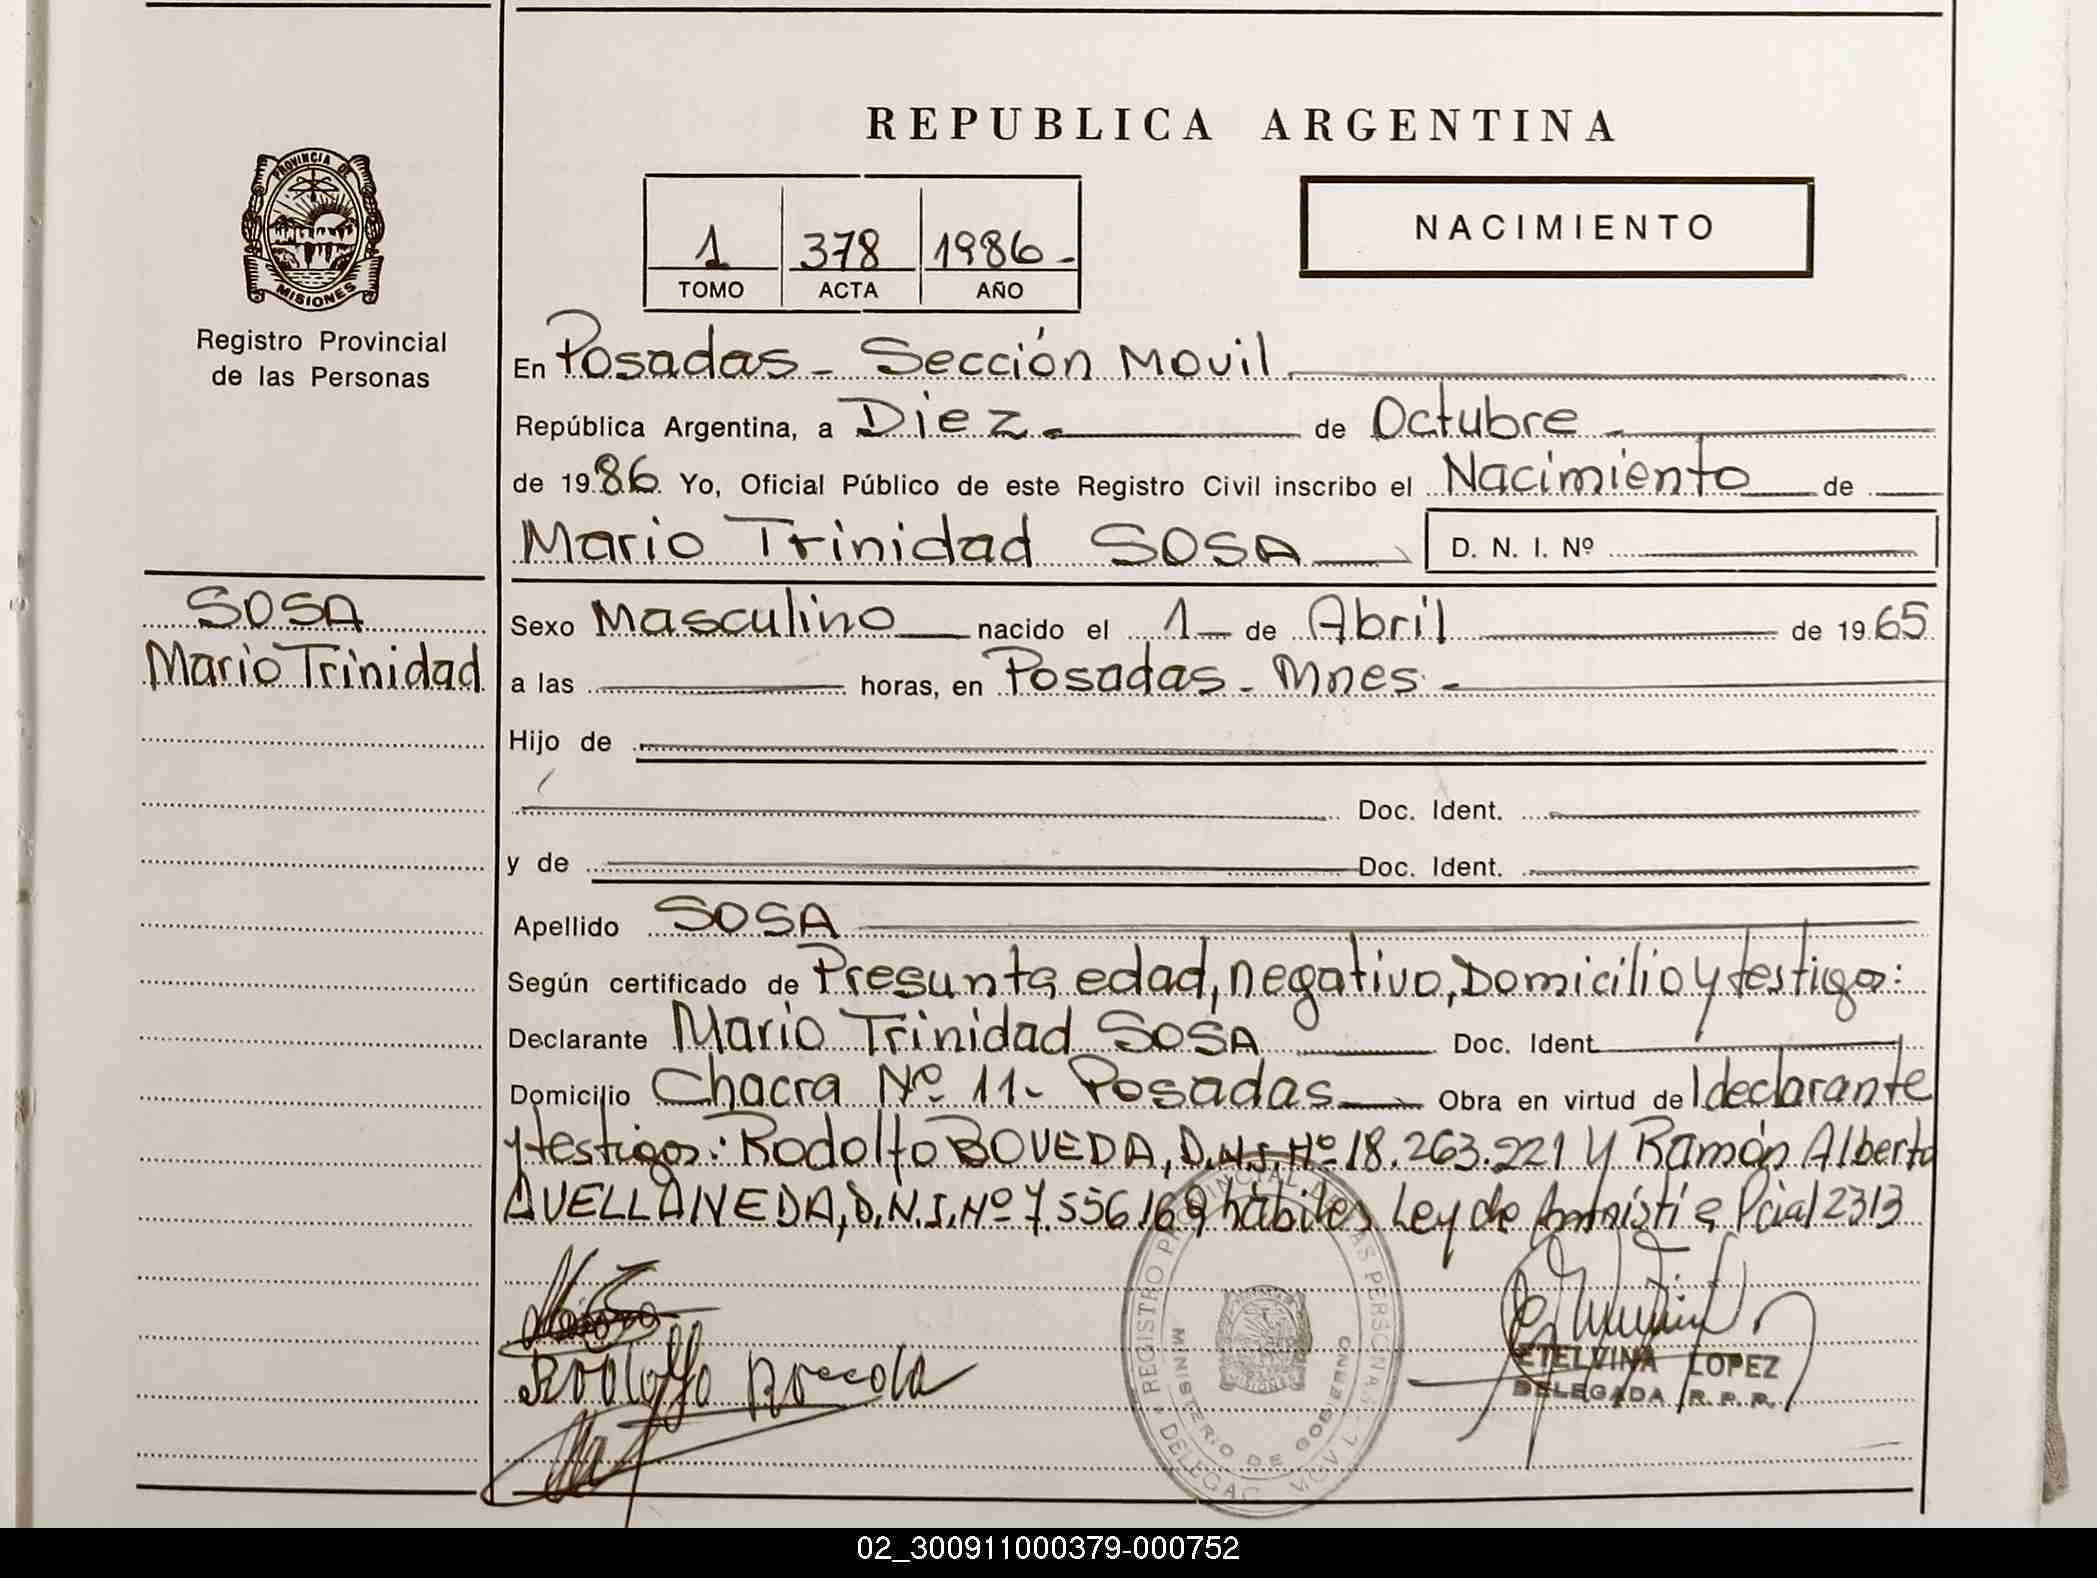 REPUBLICA ARGENTINA
PROVINCIA DE
MISIONES
Registro Provincial
de las Personas
1 378 1986-
TOMO ACTA AÑO
NACIMIENTO
En Posadas - Sección Movil
República Argentina, a Diez de Octubre
de 1986 Yo, Oficial Público de este Registro Civil inscribo el Nacimiento de
Mario Trinidad SOSA D. N. I. Nº
SOSA
Mario Trinidad
Sexo Masculino nacido el 1 de Abril de 1965
a las horas, en Posadas - Mnes.
Hijo de
Doc. Ident.
y de Doc. Ident.
Apellido SOSA
Según certificado de Presunta edad, negativo, Domicilio y testigos:
Declarante Mario Trinidad SOSA Doc. Ident.
Domicilio Chacra Nº 11- Posadas Obra en virtud del declarante
y testigos: Rodolfo BOVEDA, D.N.I. Nº 18.263.221 Y Ramón Alberto
AVELLANEDA, D.N.I. Nº 7.556.169 hábiles Ley de Amnistía Pcial 2313
Rodolfo
REGISTRO PROVINCIAL DE LAS PERSONAS
MINISTERIO DE GOBIERNO
ETELVINA LOPEZ
DELEGADA R. P. P.
02_300911000379-000752